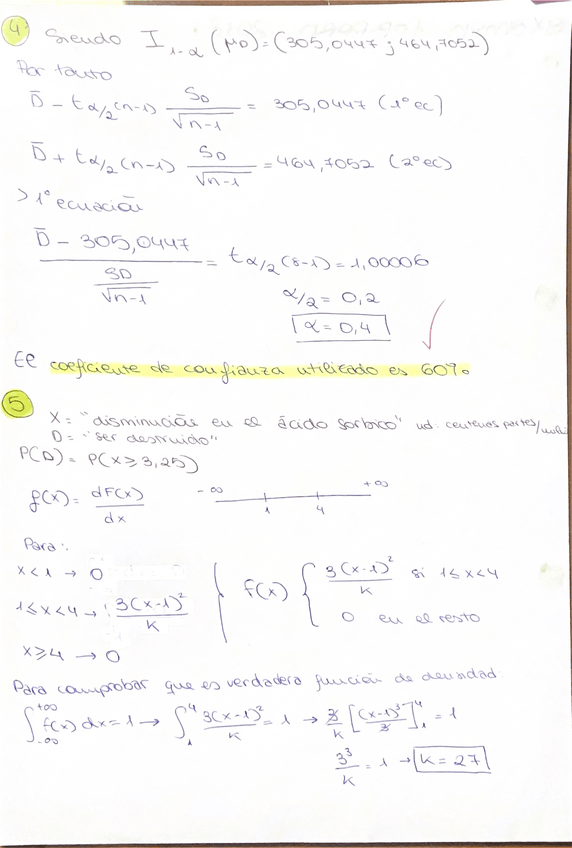 4 Siendo I₁₋α (μD) = (305,0447 ; 464,7052)
Por tanto
D̄ - tα/2 (n-1) SD/√n-1 = 305,0447 (1º ec)
D̄ + tα/2 (n-1) SD/√n-1 = 464,7052 (2º ec)
> 1º ecuación
(D̄ - 305,0447)/(SD/√n-1) = tα/2 (8-1) = 1,00006
α/2 = 0,2
α = 0,4
El coeficiente de confianza utilizado es 60%
5
X = "disminución en el ácido sorbico" ud: centenas partes/
D = "ser destruido"
P(D) = P(X ≥ 3,25)
f(x) = dF(x)/dx
-∞ 1 4 +∞
Para:
x < 1 → 0
1 ≤ x < 4 → 3(x-1)²/K
x ≥ 4 → 0
f(x) { 3(x-1)²/K si 1 ≤ x < 4
0 en el resto
Para comprobar que es verdadera función de densidad:
∫₋∞⁺∞ f(x) dx = 1 → ∫₁⁴ 3(x-1)²/K = 1 → 3/K [(x-1)³/3]₁⁴ = 1
3³/K = 1 → K = 27